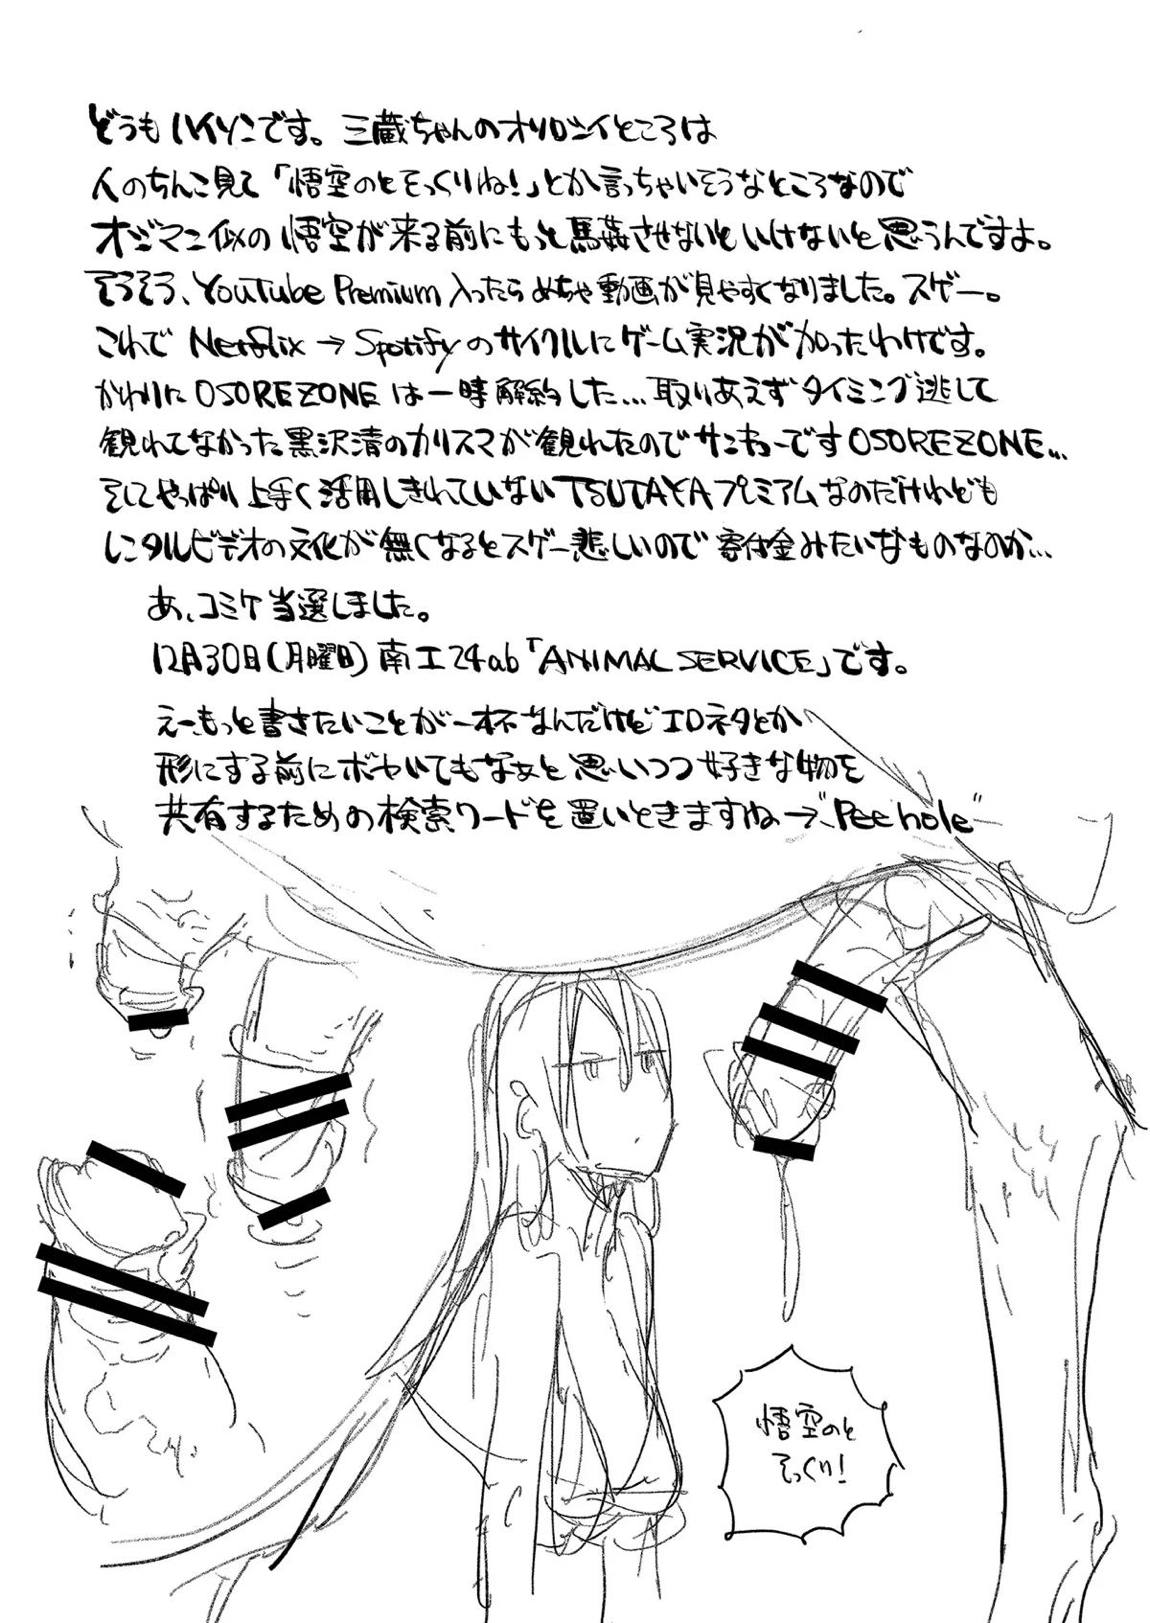 どうもハイソこです。三蔵ちゃんのオソロシイところは
人のちんこ見て「悟空のとそっくりね!」とか言っちゃいそうなところなので
オジマン似の悟空が来る前にもっと馬姦させないといけないと思うんですよ。
そろそろ、YouTube Premium入ったらめちゃ動画が見やすくなりました。スゲー。
これで Netflix → Spotifyのサイクルにゲーム実況が加ったわけです。
かわりにOSOREZONEは一時解約した…取りあえずタイミング逃して
観れてなかった黒沢清のカリスマが観れたのでサンキューですOSOREZONE…
そしてやっぱり上手く活用しきれていないTSUTAYAプレミアムなのだけれども
レンタルビデオの文化が無くなるとスゲー悲しいので寄付金みたいなものなのか…
あ、コミケ当選しました。
12月30日(月曜日)南エ24ab「ANIMAL SERVICE」です。
えー、もっと書きたいことが一杯なんだけどエロネタとか
形にする前にボヤいてもなぁと思いつつ好きな物を
共有するための検索ワードを置いときますね→"Pee hole"
悟空のと
そっくり!